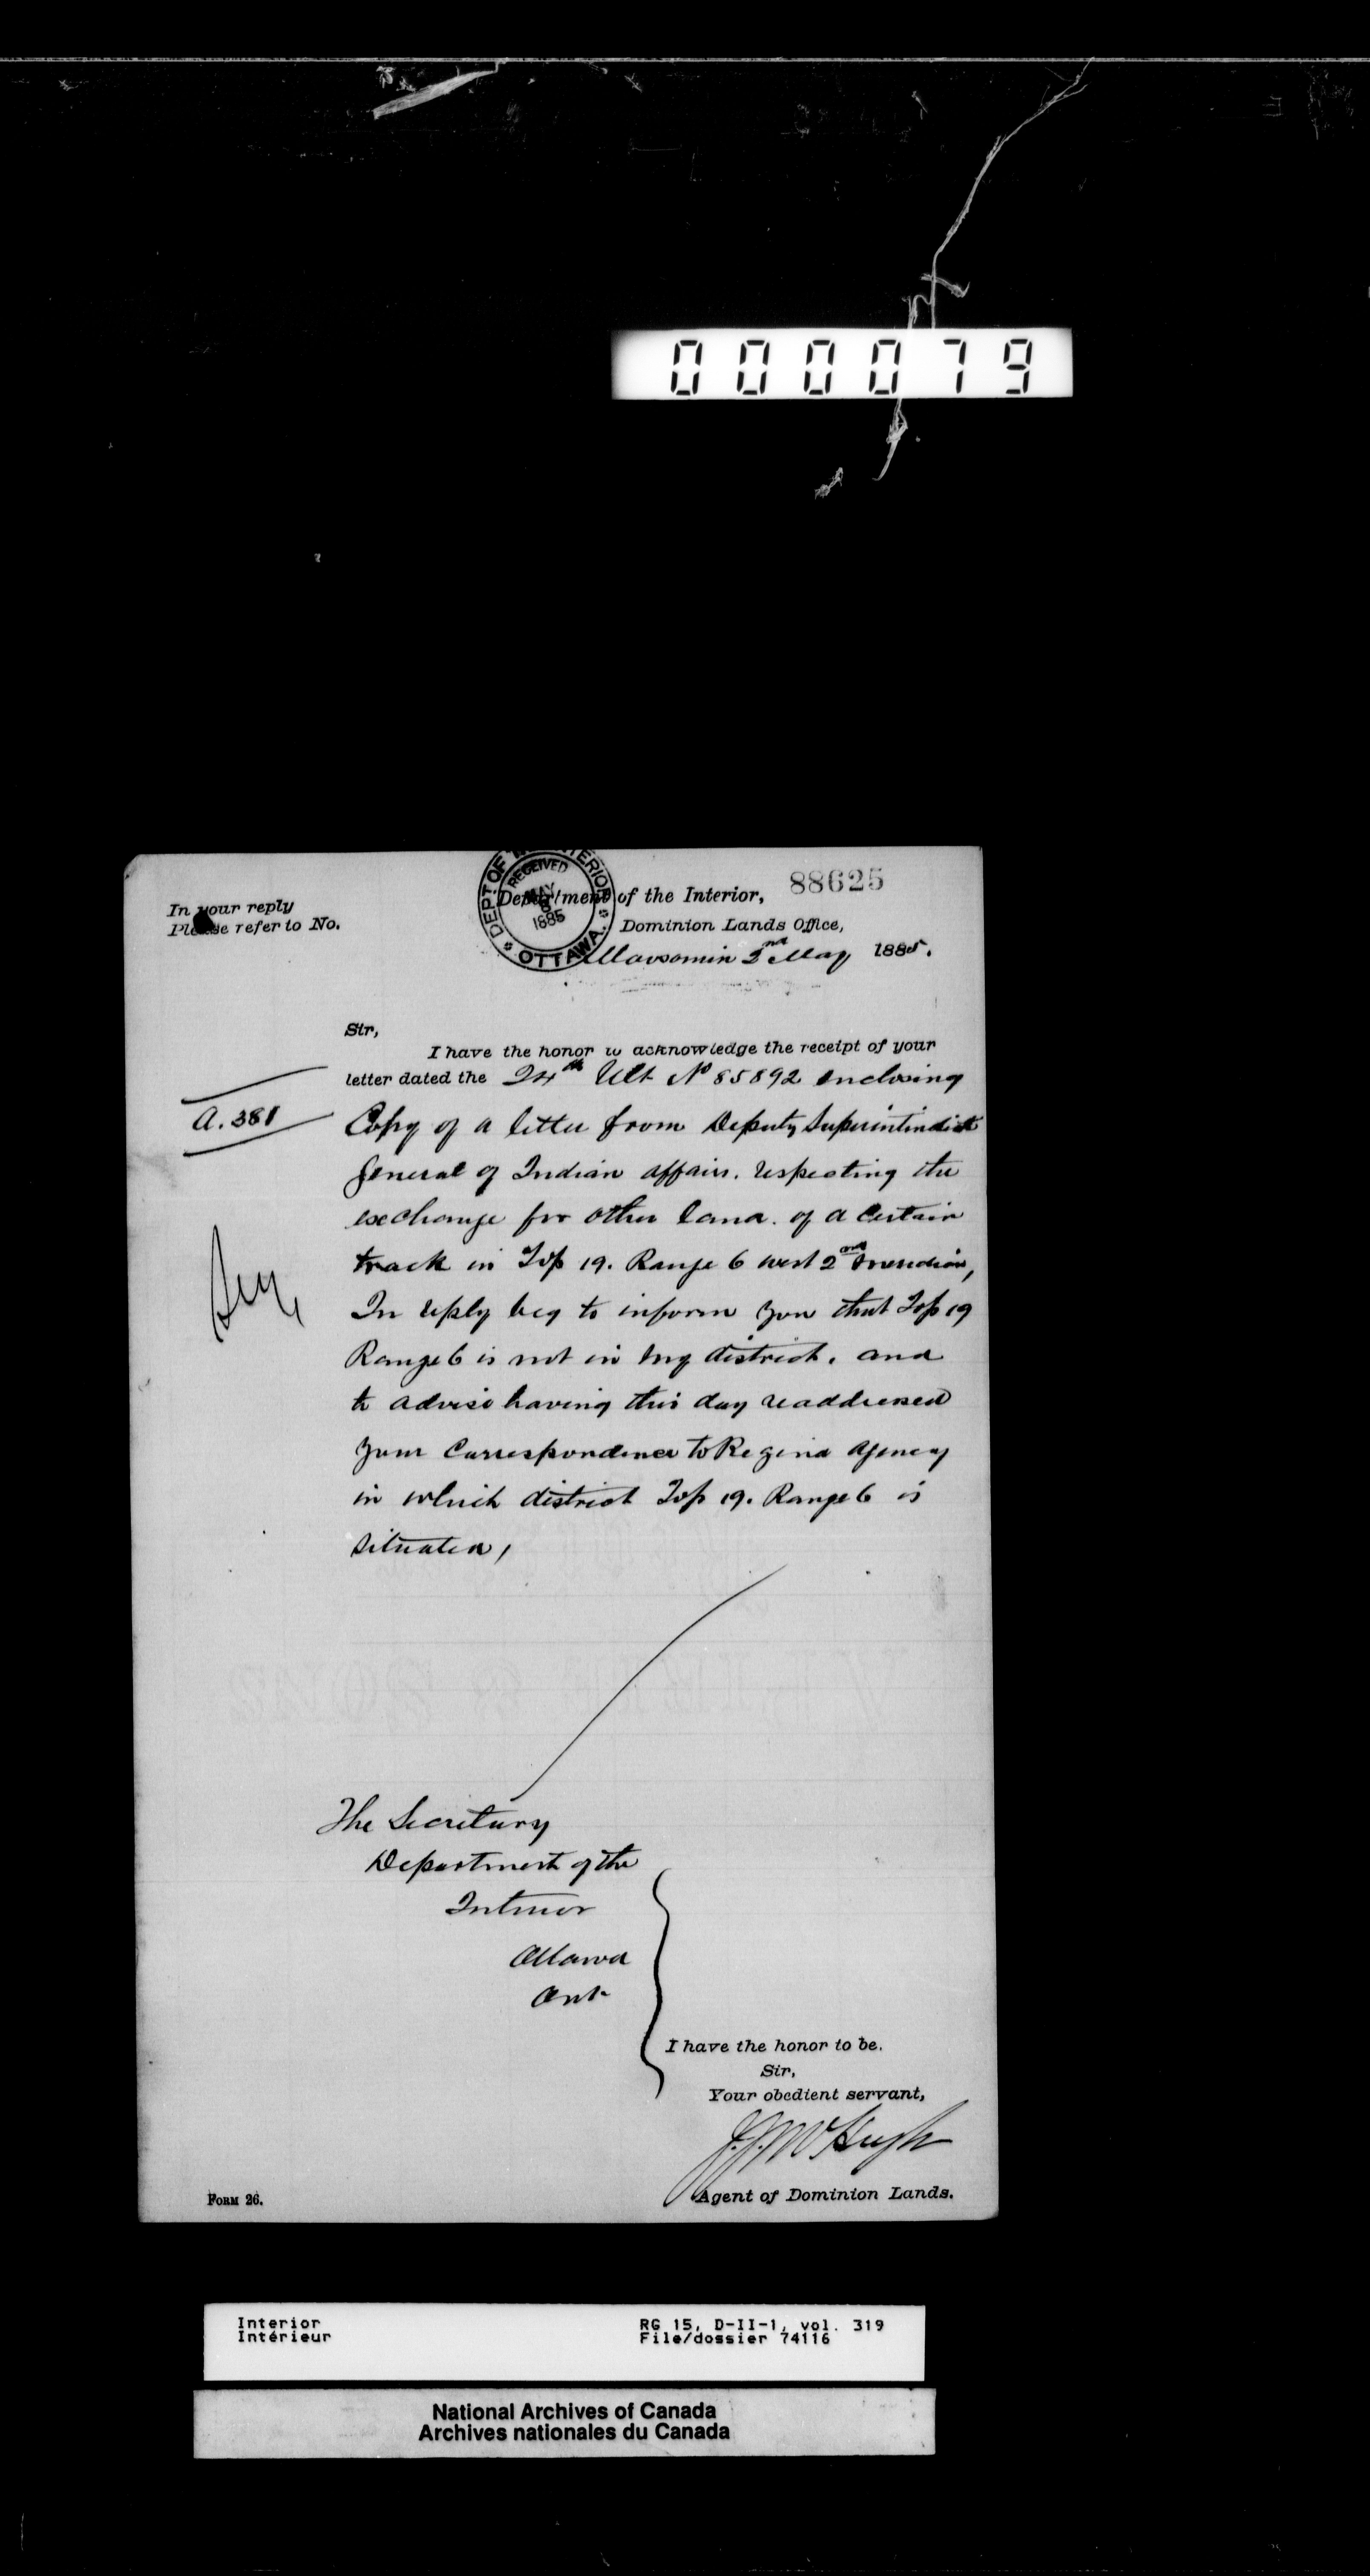 000079
DEPT. OF THE INTERIOR
RECEIVED
MAY
1885
OTTAWA.
88625
In your reply
Please refer to No.
Department of the Interior,
Dominion Lands Office,
Moosomin 2nd May 1885.
Sir,
I have the honor to acknowledge the receipt of your
letter dated the 24th Ult No 85892 enclosing
A. 381
Copy of a letter from Deputy Superintindent
General of Indian affairs. respecting the
exchange for other land. of a certain
track in Top 19. Range 6 west 2nd meridian,
In reply beg to inform you that Top 19
Range 6 is not in my district. and
to advise having this day readdressed
your Correspondence to Regina Agency
in which district Top 19. Range 6 is
situated,
The Secretary
Department of the
Interior
Ottawa
Ont
I have the honor to be.
Sir,
Your obedient servant,
J.J. McHugh
Agent of Dominion Lands.
FORM 26.
Interior
Intérieur
RG 15, D-II-1, vol. 319
File/dossier 74116
National Archives of Canada
Archives nationales du Canada